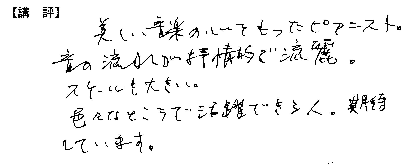 【講 評】
美しい音楽の心をもったピアニスト。
音の流れが抒情的で流麗。
スケールも大きい。
色々なところで活躍できる人。期待
しています。